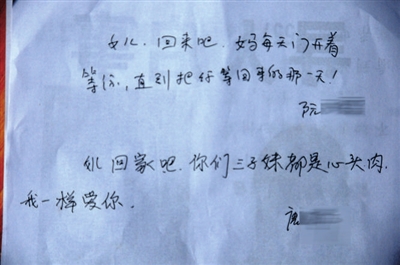 女儿.回来吧.妈每天门开着
等你,直到把你等回来的那一天!
阮
女儿回家吧.你们三子妹都是心头肉.
我一样爱你.
唐